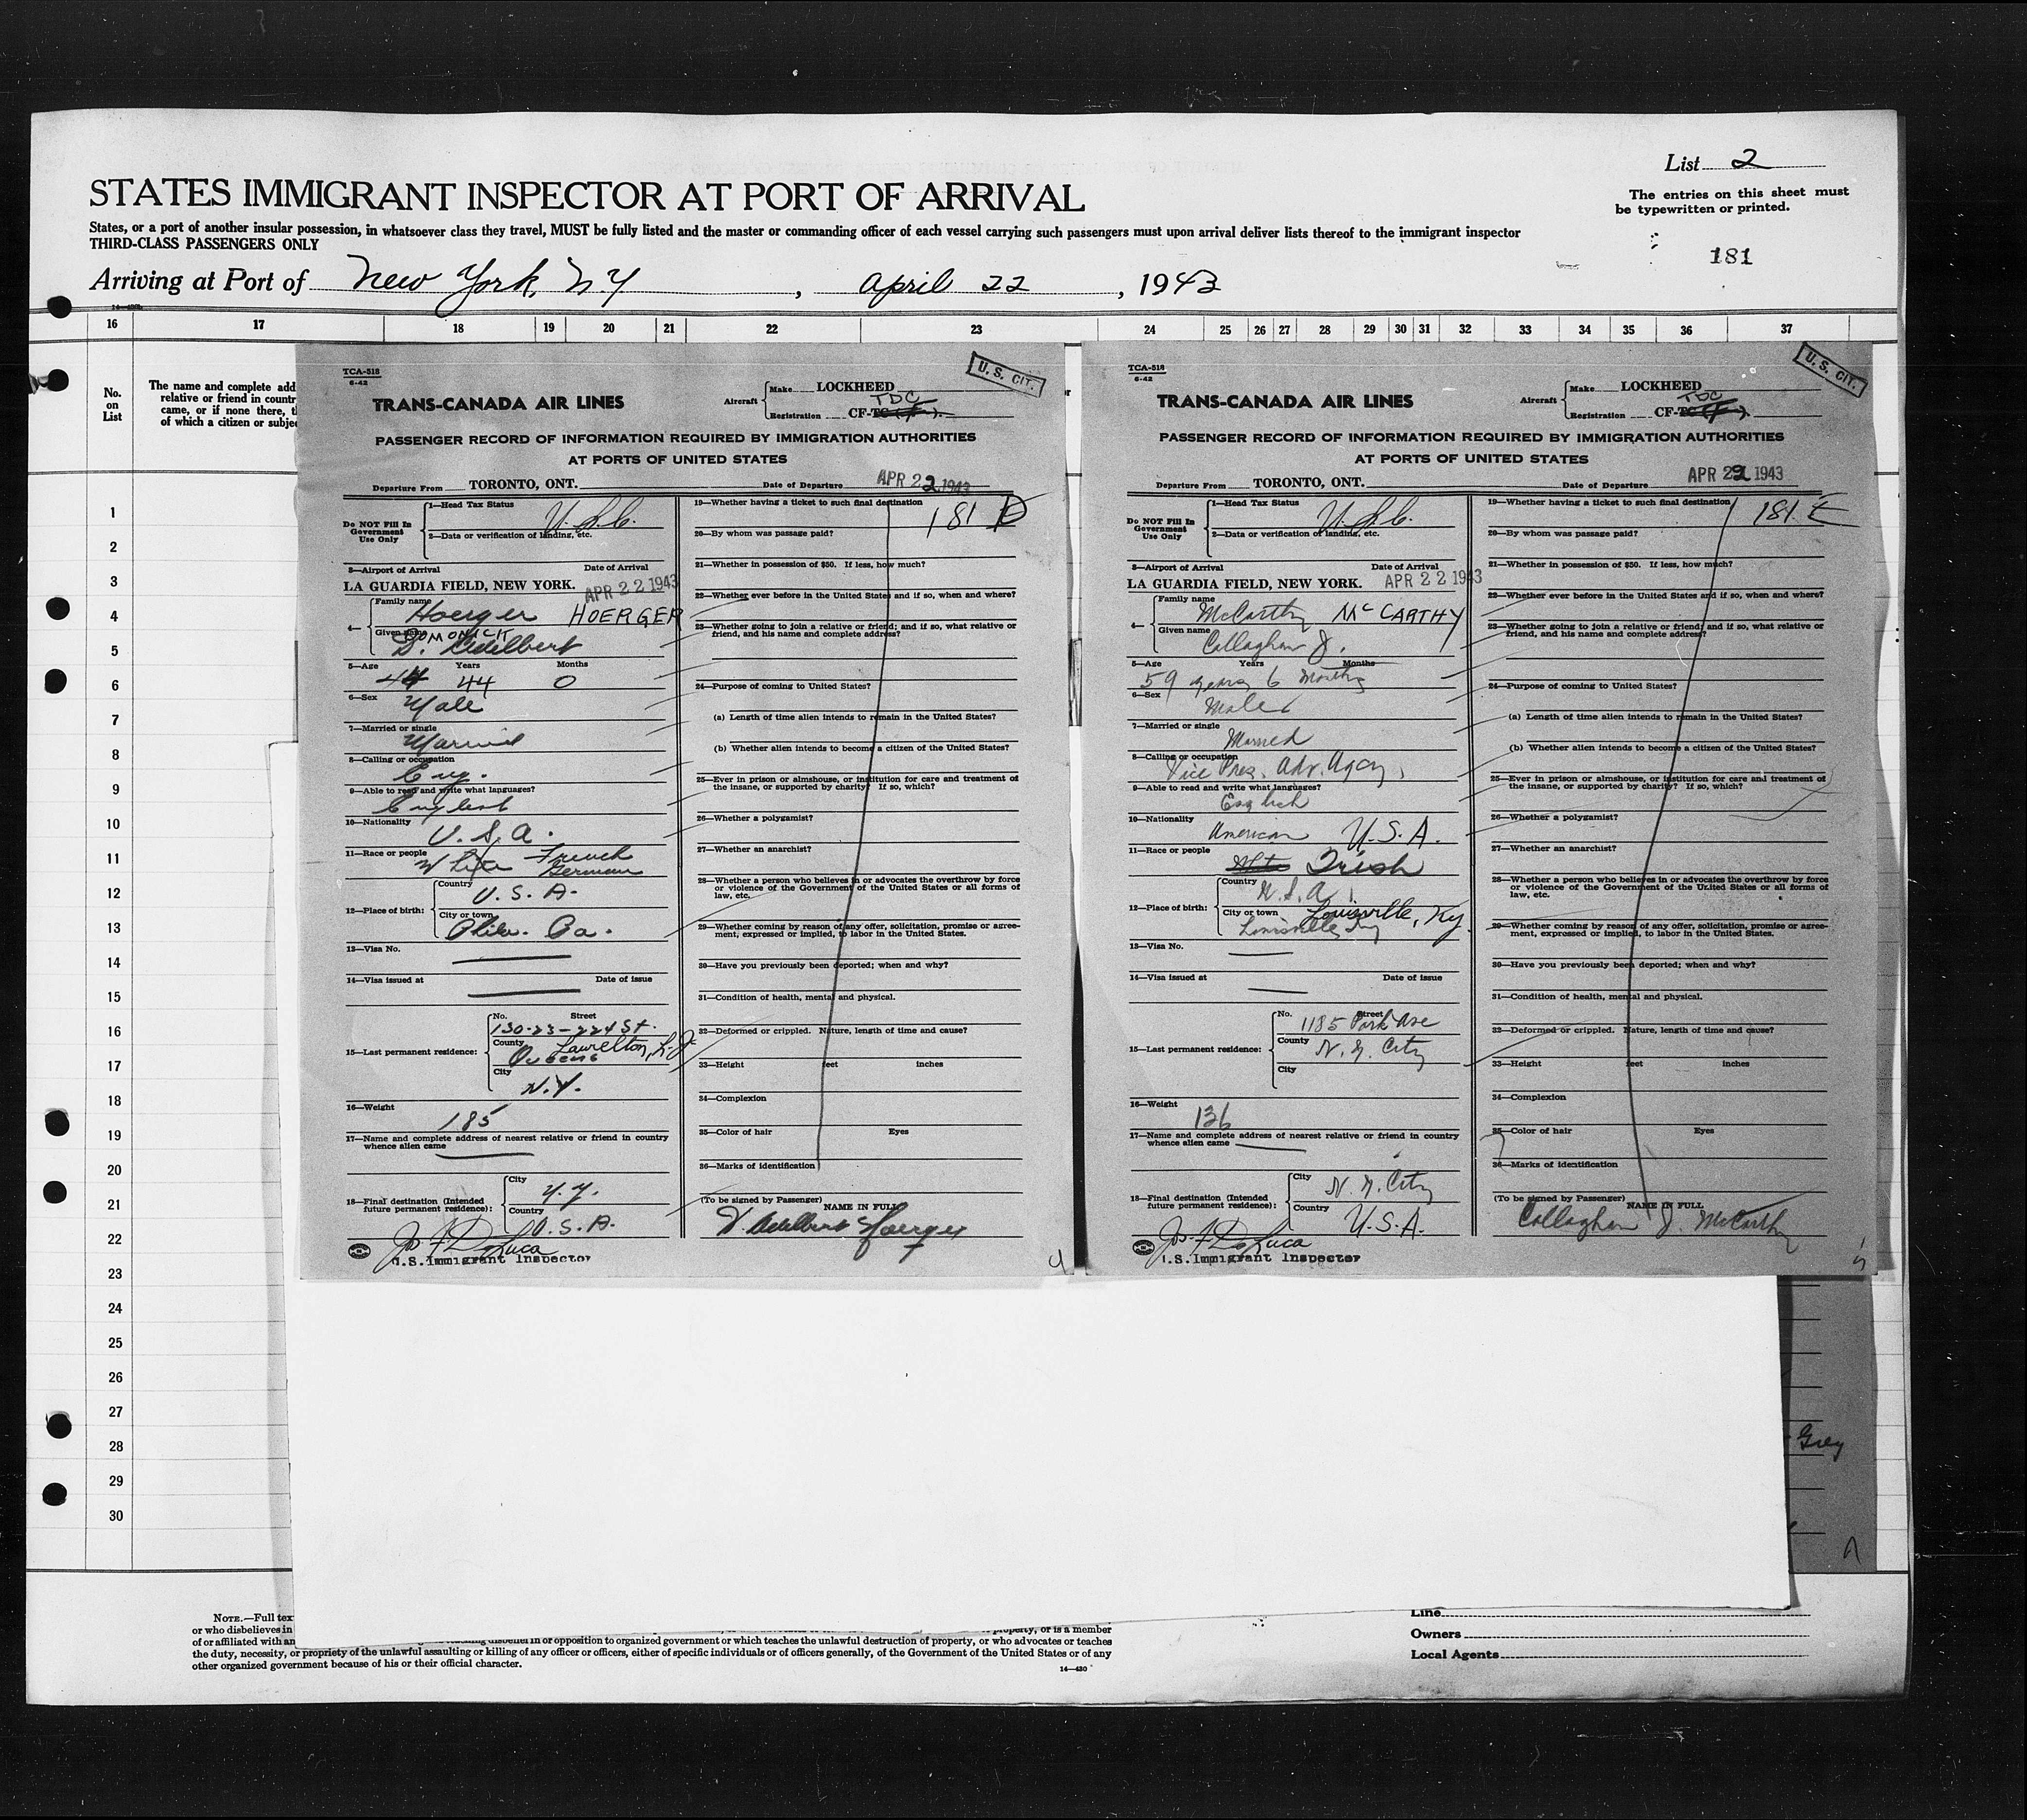 List 2
The entries on this sheet must
be typewritten or printed.
181
STATES IMMIGRANT INSPECTOR AT PORT OF ARRIVAL
States, or a port of another insular possession, in whatsoever class they travel, MUST be fully listed and the master or commanding officer of each vessel carrying such passengers must upon arrival deliver lists thereof to the immigrant inspector
THIRD-CLASS PASSENGERS ONLY
Arriving at Port of New York, N.Y , April 22 , 1943
16 17 18 19 20 21 22 23 24 25 26 27 28 29 30 31 32 33 34 35 36 37
No.
on
List
The name and complete add
relative or friend in countr
came, or if none there, t
of which a citizen or subje
1
2
3
4
5
6
7
8
9
10
11
12
13
14
15
16
17
18
19
20
21
22
23
24
25
26
27
28
29
30
TCA-518
6-42
U. S. CIT.
TRANS-CANADA AIR LINES
Aircraft
Make LOCKHEED
TDC
Registration CF-TC
PASSENGER RECORD OF INFORMATION REQUIRED BY IMMIGRATION AUTHORITIES
AT PORTS OF UNITED STATES
Departure From TORONTO, ONT. Date of Departure APR 22 1943
Do NOT Fill In
Government
Use Only
1—Head Tax Status
U.S.C.
2—Data or verification of landing, etc.
3—Airport of Arrival Date of Arrival
LA GUARDIA FIELD, NEW YORK. APR 22 1943
4—
Family name
Hoerger HOERGER
Given name
DOMONICK
D. Adelbert
5—Age Years Months
44 44 0
6—Sex
Male
7—Married or single
Married
8—Calling or occupation
Eng.
9—Able to read and write what languages?
English
10—Nationality
U.S.A.
11—Race or people
White French
German
12—Place of birth:
Country
U.S.A.
City or town
Phila. Pa.
13—Visa No.
14—Visa issued at Date of issue
15—Last permanent residence:
No. Street
130-23-224 St.
County Laurelton, L.I.
Queens
City
N.Y.
16—Weight
185
17—Name and complete address of nearest relative or friend in country
whence alien came
18—Final destination (Intended
future permanent residence):
City
N.Y.
Country
U.S.A.
Jos. F. DeLuca
U.S. Immigrant Inspector
19—Whether having a ticket to such final destination
181 D
20—By whom was passage paid?
21—Whether in possession of $50. If less, how much?
22—Whether ever before in the United States and if so, when and where?
23—Whether going to join a relative or friend; and if so, what relative or
friend, and his name and complete address?
24—Purpose of coming to United States?
(a) Length of time alien intends to remain in the United States?
(b) Whether alien intends to become a citizen of the United States?
25—Ever in prison or almshouse, or institution for care and treatment of
the insane, or supported by charity? If so, which?
26—Whether a polygamist?
27—Whether an anarchist?
28—Whether a person who believes in or advocates the overthrow by force
or violence of the Government of the United States or all forms of
law, etc.
29—Whether coming by reason of any offer, solicitation, promise or agree-
ment, expressed or implied, to labor in the United States.
30—Have you previously been deported; when and why?
31—Condition of health, mental and physical.
32—Deformed or crippled. Nature, length of time and cause?
33—Height feet inches
34—Complexion
35—Color of hair Eyes
36—Marks of identification
(To be signed by Passenger)
NAME IN FULL
D. Adelbert Hoerger
4
TCA-518
6-42
U. S. CIT.
TRANS-CANADA AIR LINES
Aircraft
Make LOCKHEED
TDC
Registration CF-TC
PASSENGER RECORD OF INFORMATION REQUIRED BY IMMIGRATION AUTHORITIES
AT PORTS OF UNITED STATES
Departure From TORONTO, ONT. Date of Departure APR 22 1943
Do NOT Fill In
Government
Use Only
1—Head Tax Status
U.S.C.
2—Data or verification of landing, etc.
3—Airport of Arrival Date of Arrival
LA GUARDIA FIELD, NEW YORK. APR 22 1943
4—
Family name
McCarthy McCARTHY
Given name
Callaghan J.
5—Age Years Months
59 years 6 Months
6—Sex
Male
7—Married or single
Married
8—Calling or occupation
Vice Pres. Adv. Agcy,
9—Able to read and write what languages?
English
10—Nationality
American U.S.A.
11—Race or people
Irish
12—Place of birth:
Country
U.S.A.
City or town Louisville, Ky.
Louisville, Ky
13—Visa No.
14—Visa issued at Date of issue
15—Last permanent residence:
No. Street
1185 Park Ave
County
N.Y. City
City
16—Weight
136
17—Name and complete address of nearest relative or friend in country
whence alien came
18—Final destination (Intended
future permanent residence):
City
N.Y. City
Country
U.S.A.
Jos. F. DeLuca
U.S. Immigrant Inspector
19—Whether having a ticket to such final destination
181 E
20—By whom was passage paid?
21—Whether in possession of $50. If less, how much?
22—Whether ever before in the United States and if so, when and where?
23—Whether going to join a relative or friend; and if so, what relative or
friend, and his name and complete address?
24—Purpose of coming to United States?
(a) Length of time alien intends to remain in the United States?
(b) Whether alien intends to become a citizen of the United States?
25—Ever in prison or almshouse, or institution for care and treatment of
the insane, or supported by charity? If so, which?
26—Whether a polygamist?
27—Whether an anarchist?
28—Whether a person who believes in or advocates the overthrow by force
or violence of the Government of the United States or all forms of
law, etc.
29—Whether coming by reason of any offer, solicitation, promise or agree-
ment, expressed or implied, to labor in the United States.
30—Have you previously been deported; when and why?
31—Condition of health, mental and physical.
32—Deformed or crippled. Nature, length of time and cause?
33—Height feet inches
34—Complexion
35—Color of hair Eyes
36—Marks of identification
(To be signed by Passenger)
NAME IN FULL
Callaghan J. McCarthy
5
Grey
NOTE.—Full tex
or who disbelieves in property, or is a member
of or affiliated with an teaching disbelief in or opposition to organized government or which teaches the unlawful destruction of property, or who advocates or teaches
the duty, necessity, or propriety of the unlawful assaulting or killing of any officer or officers, either of specific individuals or of officers generally, of the Government of the United States or of any
other organized government because of his or their official character.
14—430
Line
Owners
Local Agents